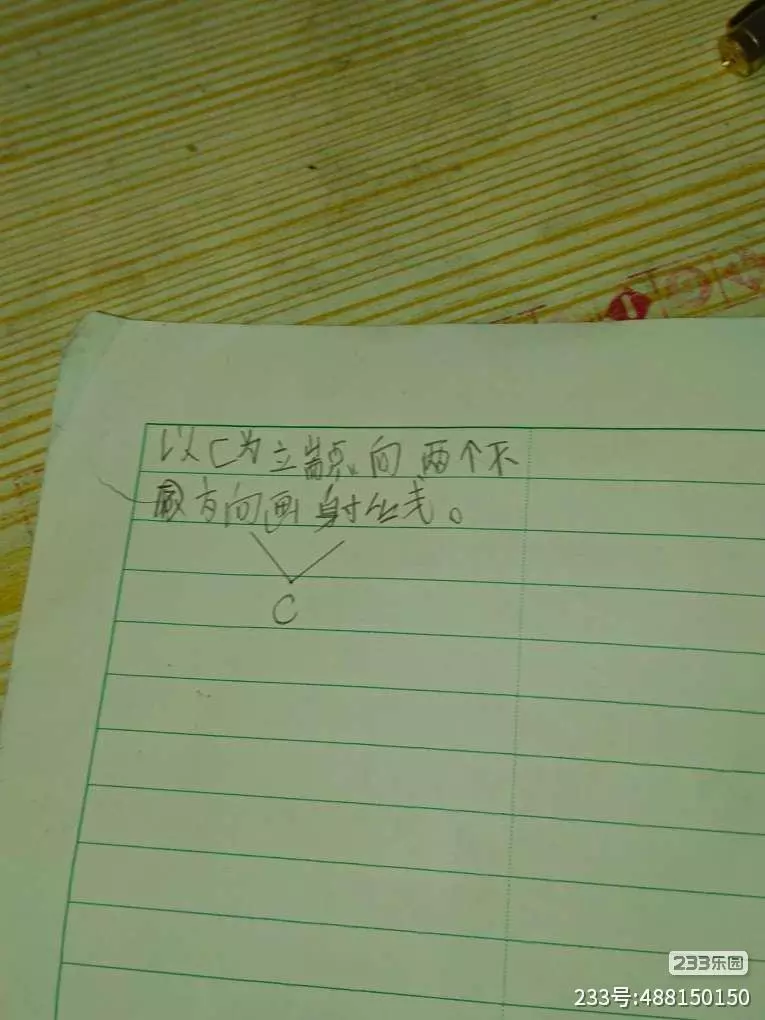 以C为立端点.向两个不
同方向画射线。
C
233乐园
233号:488150150